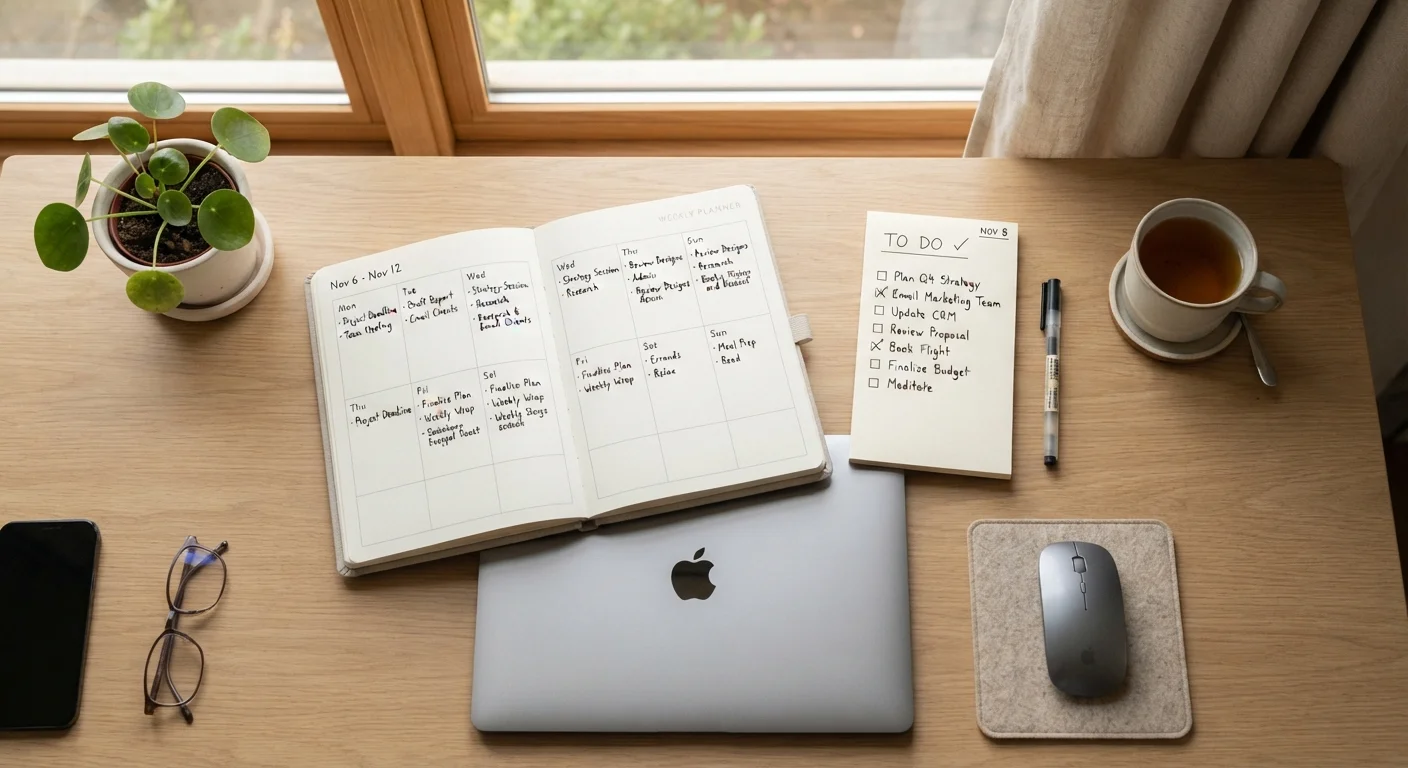 WEEKLY PLANNER
Nov 6 - Nov 12
Mon
• Project Deadline
• Team
Tue
• Draft Report
• Email Clients
Wed
• Strategy Session
• Research
Thu
• Project Deadline
Fri
• Finalize Plan
• Weekly Wrop
Sat
• Finalize Plan
• Weekly Wrop
• Weekly
Wed
• Strategy Session
• Research
Thu
• Review Designs
• Admin
• Review Designs
Sun
• Review Designs
• Research
Fri
• Finalize Plan
• Weekly Wrop
Sat
• Errands
• Relax
Sun
• Meal Prep
• Read
NOV 8
TO DO ✓
☐ Plan Q4 Strategy
☒ Email Marketing Team
☐ Update CRM
☐ Review Proposal
☒ Book Flight
☐ Finalize Budget
☐ Meditate